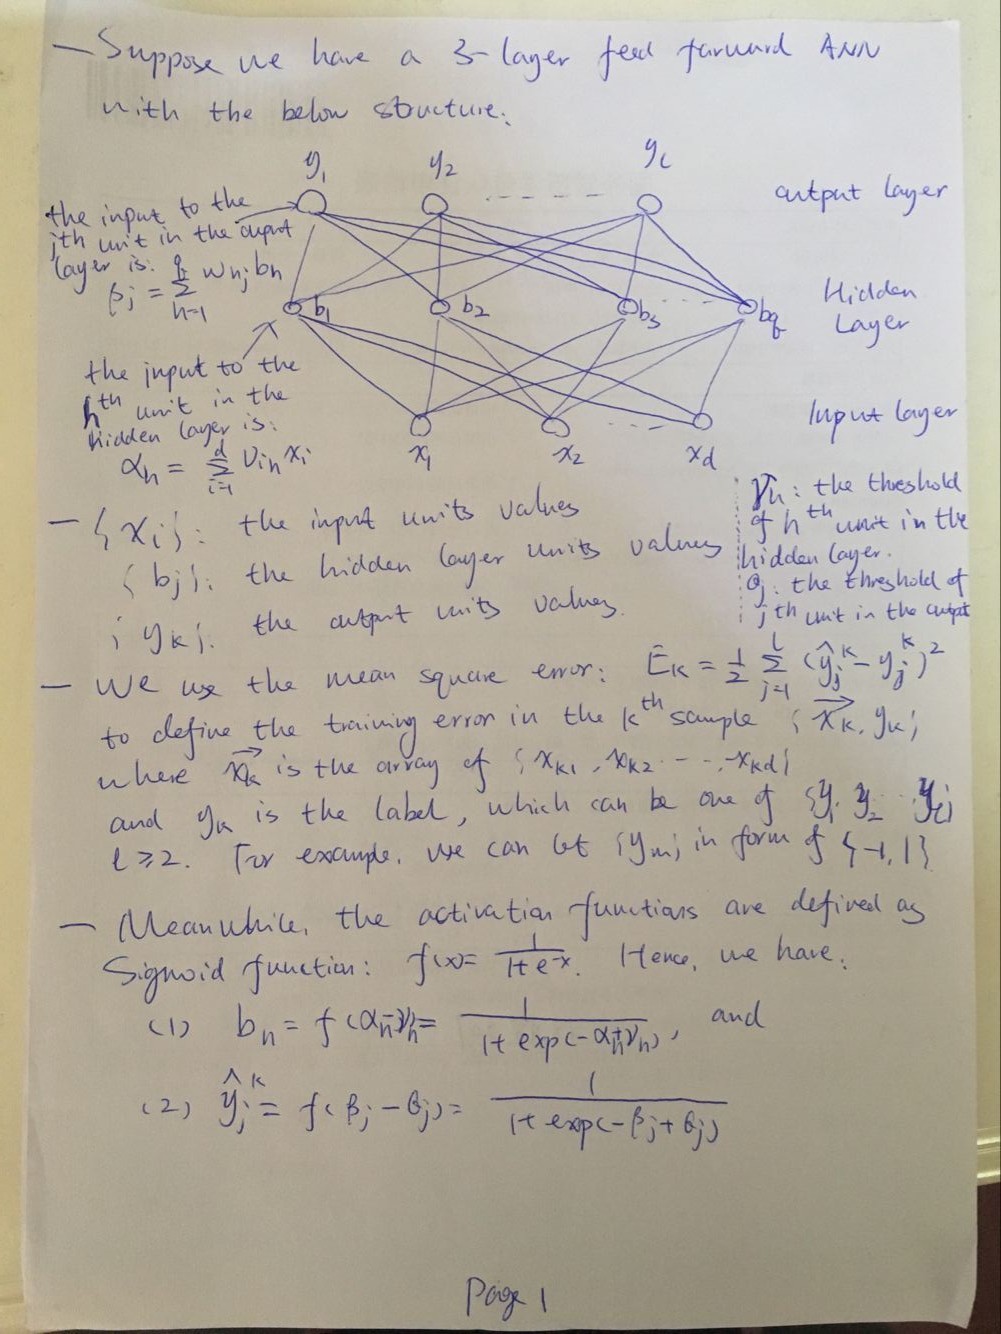 — Suppose we have a 3-layer feed forward ANN
with the below structure:
y₁ y₂ - - - - yₗ
output layer
the input to the
jth unit in the output
layer is:
βⱼ = Σ_{h=1}^{q} wₕⱼbₕ
b₁ b₂ b₃ - - - b_q
Hidden
Layer
the input to the
hᵗʰ unit in the
hidden layer is:
αₕ = Σ_{i=1}^{d} vᵢₕ xᵢ
x₁ x₂ - - - x_d
Input layer
γₕ: the threshold
of hᵗʰ unit in the
hidden layer.
θⱼ: the threshold of
jth unit in the output
— {xᵢ}: the input units values
{bⱼ}: the hidden layer units values
{yₖ}: the output units values.
— We use the mean square error: Eₖ = 1/2 Σ_{j=1}^{l} (ŷⱼᵏ - yⱼᵏ)²
to define the training error in the kᵗʰ sample {x⃗ₖ, yₖ}
where x⃗ₖ is the array of {xₖ₁, xₖ₂ - - - , xₖd}
and yₖ is the label, which can be one of {y₁, y₂ ... yₗ}
l ≥ 2. For example, we can let {yₘ} in form of {-1, 1}
— Meanwhile, the activation functions are defined as
Sigmoid function: f(x) = 1/(1+e⁻ˣ). Hence, we have:
(1) bₕ = f(αₕ-γₕ) = 1/(1+exp(-αₕ+γₕ)), and
(2) ŷⱼᵏ = f(βⱼ-θⱼ) = 1/(1+exp(-βⱼ+θⱼ))
Page 1